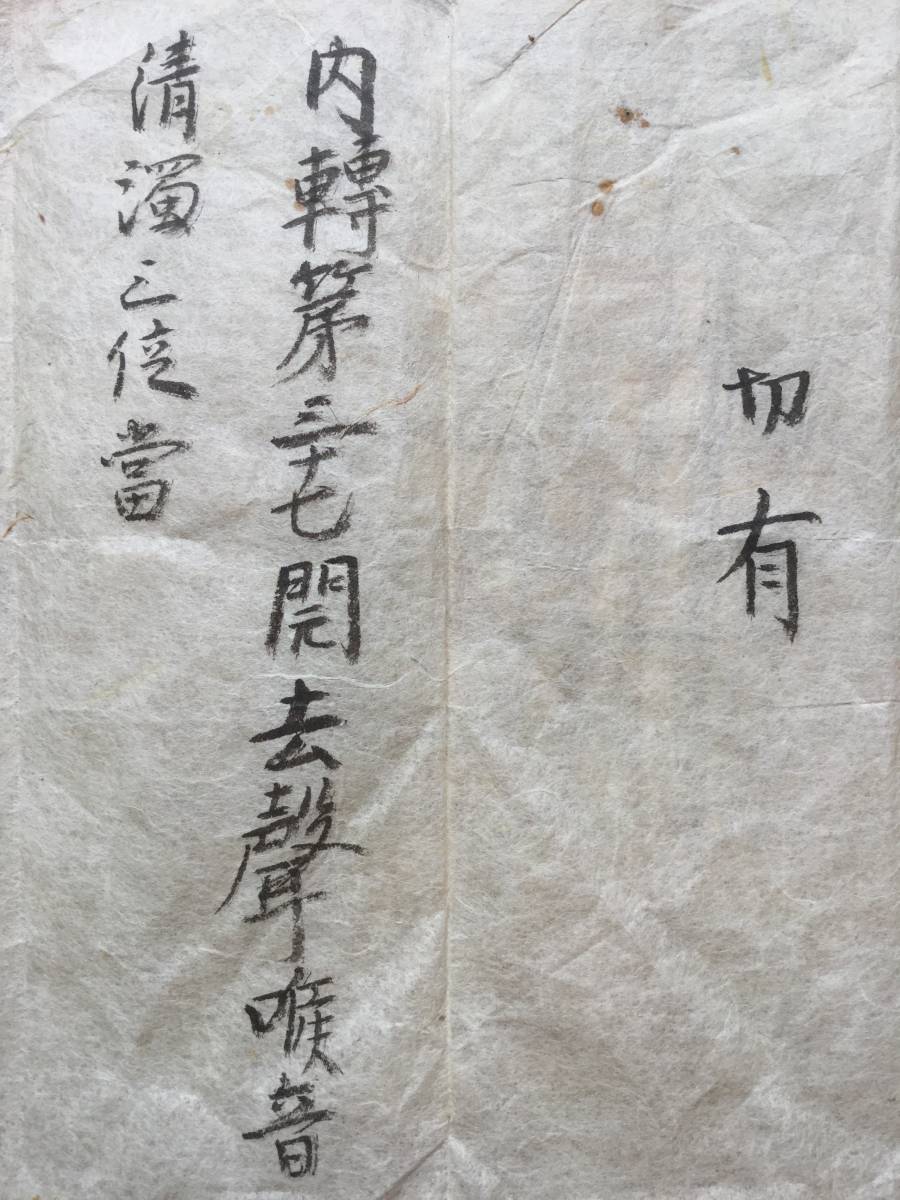 切有
内轉第三十七開去聲喉音
清濁三位當